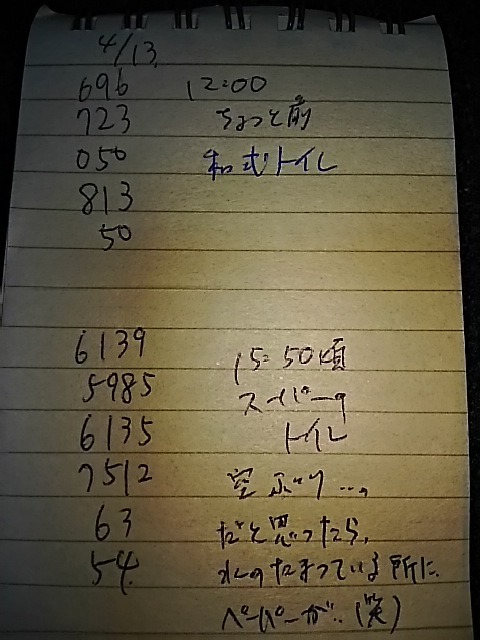 4/13
696 12:00
723 ちょっと前
050 和式トイレ
813
50
6139 15:50頃
5985 スーパーの
6135 トイレ
7512 空ぶり…。
63 だと思ったら、
54 水のたまっている所に
ペーパーが..(笑)